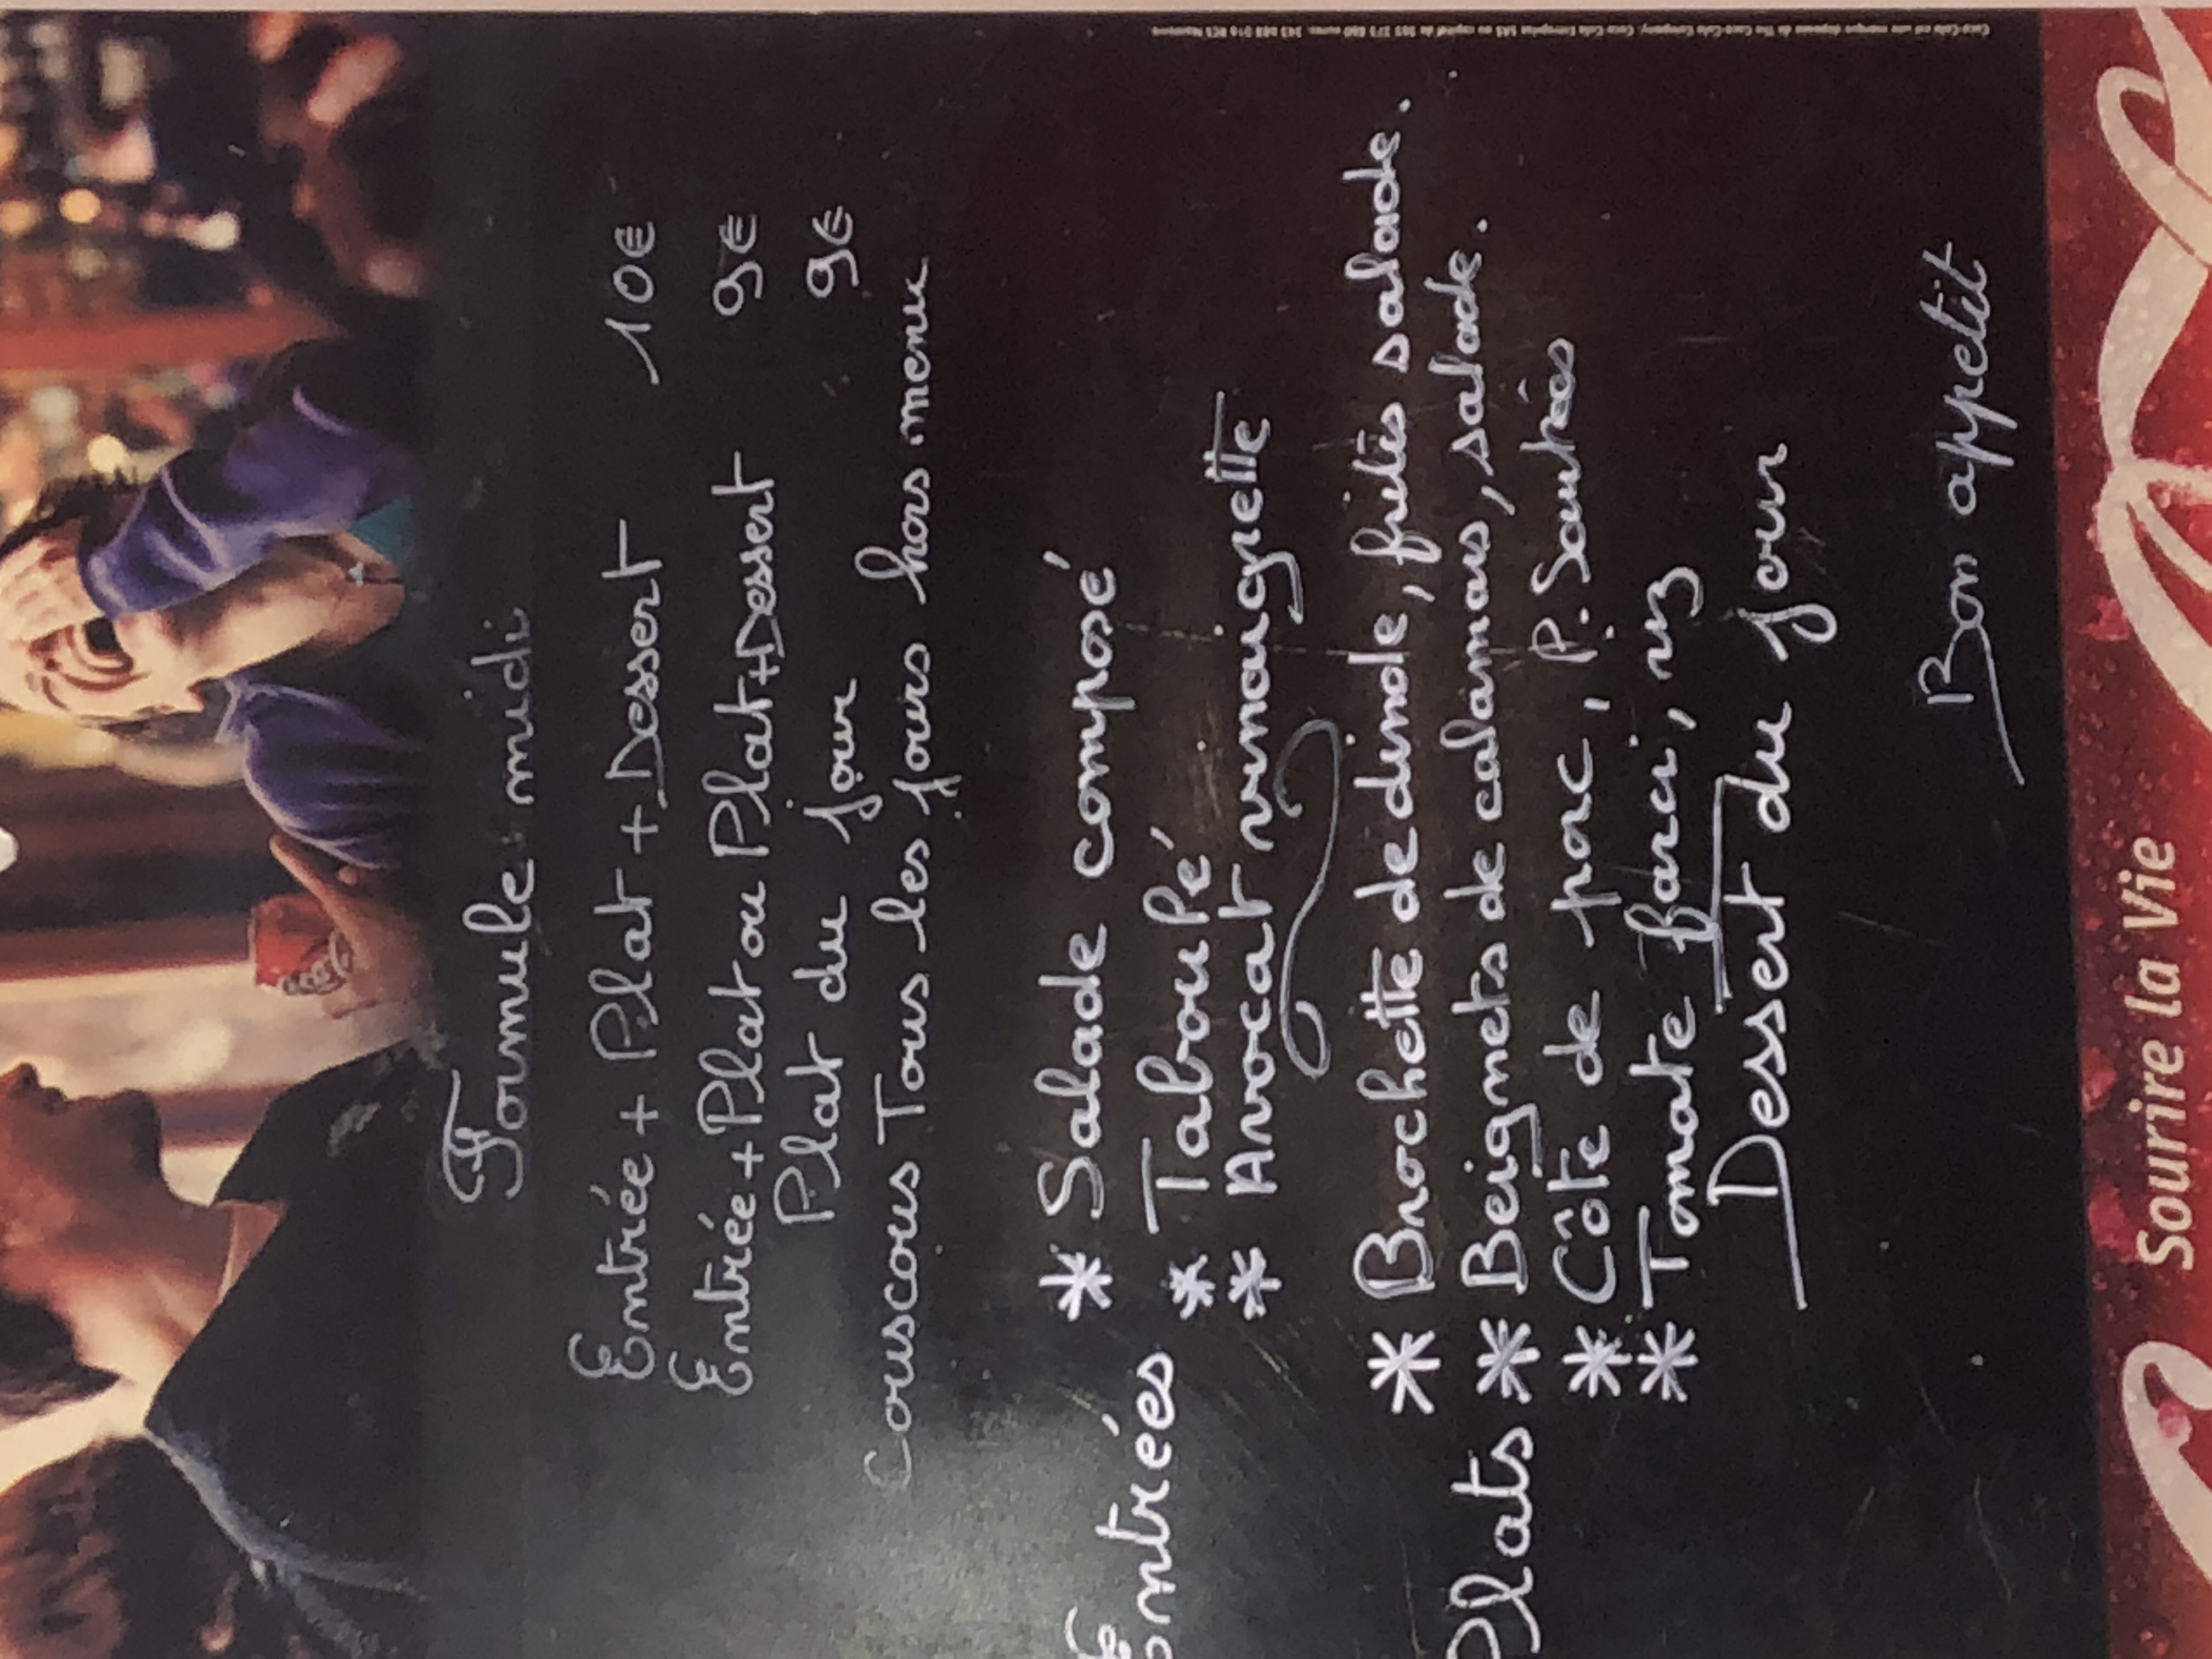 Formule midi
Entrée + Plat + Dessert 10€
Entrée + Plat ou Plat + Dessert 9€
Plat du jour 9€
Couscous Tous les jours hors menu
Entrées
* Salade composé
* Taboulé
* Avocat vinaigrette
Plats
* Brochette de dinde, frites salade.
* Beignets de calamars, salade.
* Côte de porc, P. Sautées
* Tomate farci, riz
Dessert du jour
Bon appetit
Sourire la Vie